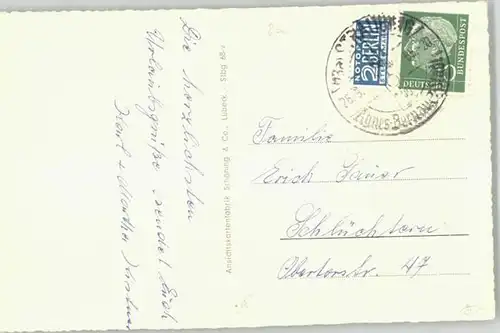 Die herzlichsten
Urlaubsgrüße sendet Euch
Karl + Martha
Ansichtskartenfabrik Schöning & Co., Lübeck
NOTOPFER
2 BERLIN
STEUERMARKE
DEUTSCHE
BUNDESPOST
Familie
Erich Sauer
Schlüchtern
Obertorstr. 47